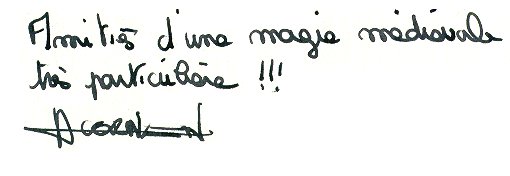 Amitiés d'une magie médiévale
très particulière !!!